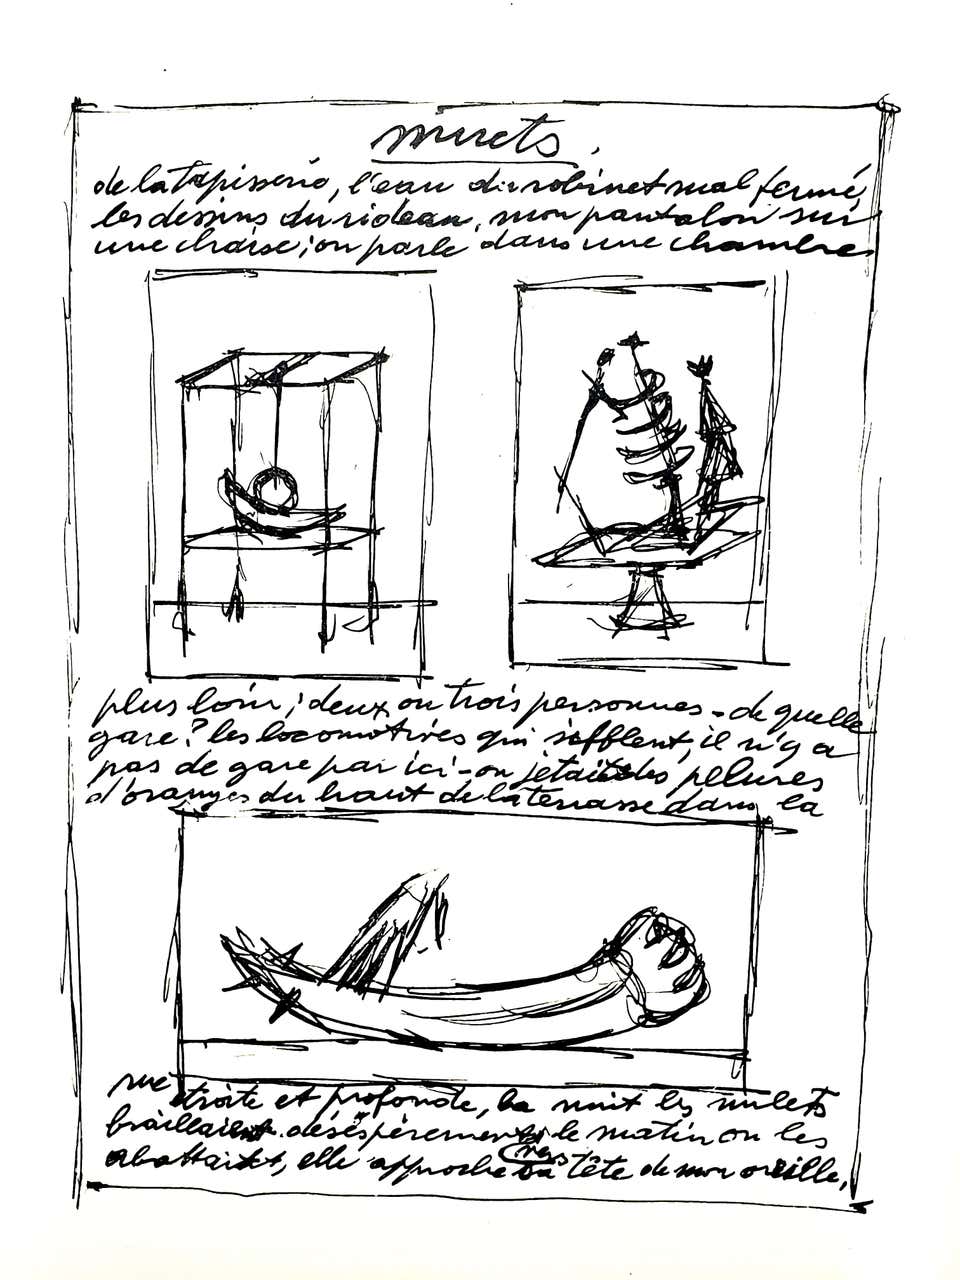 muets.
de la tapisserie, l'eau du robinet mal fermé,
les dessins du rideau, mon pantalon sur
une chaise; on parle dans une chambre
plus loin; deux ou trois personnes - de quelle
gare? les locomotives qui sifflent, il n'y a
pas de gare par ici - on jetait des pelures
d'oranges du haut de la terrasse dans la
rue étroite et profonde, la nuit les mulets
braillaient désespérement le matin on les
vers
abattait, elle approche sa tête de mon oreille,